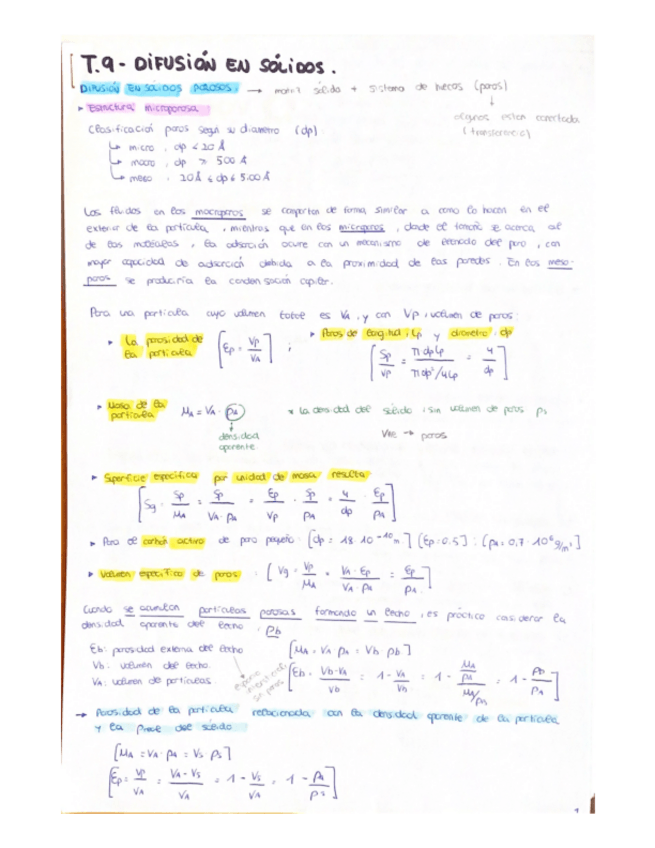 T.9 - DIFUSIÓN EN SÓLIDOS.
DIFUSIÓN EN SÓLIDOS POROSOS. → matriz sólida + sistema de huecos (poros)
↓
algunos están conectados
(transferencia)
▸ Estructura microporosa:
Clasificación poros según su diámetro (dp):
↳ micro, dp < 20 Å
↳ macro, dp > 500 Å
↳ meso, 20 Å ≤ dp ≤ 500 Å
Los fluidos en los macroporos se comportan de forma similar a como lo hacen en el
exterior de la partícula, mientras que en los microporos, donde el tamaño se acerca al
de las moléculas, la adsorción ocurre con un mecanismo de llenado del poro, con
mayor capacidad de adsorción debida a la proximidad de las paredes. En los meso-
poros se produciría la condensación capilar.
Para una partícula cuyo volumen total es VA, y con Vp, volumen de poros:
▸ La porosidad de la partícula [Ep = Vp/VA] ;
▸ Poros de longitud, Lp y diámetro, dp
[Sp/Vp = π dp Lp / π dp²/4 Lp = 4/dp]
▸ Masa de la partícula MA = VA · ρA * La densidad del sólido, sin volumen de poros ρs
↓
densidad aparente
→ poros
▸ Superficie específica por unidad de masa resulta
[Sg = Sp/MA = Sp/VA·ρA = Ep/Vp · Sp/ρA = 4/dp · Ep/ρA]
▸ Para el carbón activo de poro pequeño: [dp = 18·10⁻¹⁰ m] [Ep = 0.5] : [ρA = 0,7·10⁶ g/m³]
▸ Volumen específico de poros: [Vg = Vp/MA = VA·Ep/VA·ρA = Ep/ρA]
Cuando se acumulan partículas porosas formando un lecho, es práctico considerar la
densidad aparente del lecho: ρb
Eb: porosidad externa del lecho [MA = VA ρA = Vb ρb]
Vb: volumen del lecho.
VA: volumen de partículas.
espacio intersticial sin poros
[Eb = Vb-VA/Vb = 1 - VA/Vb = 1 - MA/ρA / MA/ρb = 1 - ρb/ρA]
→ Porosidad de la partícula relacionada con la densidad aparente de la partícula
y la del sólido
[MA = VA·ρA = Vs ρs]
[Ep = Vp/VA = VA - Vs/VA = 1 - Vs/VA = 1 - ρA/ρs]
1